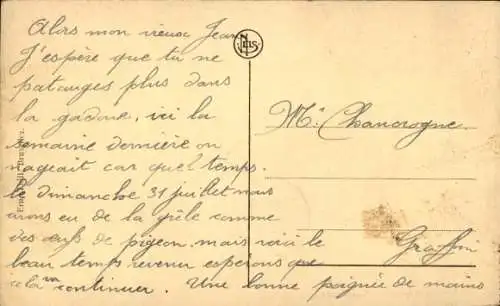 Alors mon vieux Jean
J'espère que tu ne
patauges plus dans
la gadoue, ici la
semaine dernière on
nageait car quel temps.
le dimanche 31 juillet nous
avons eu de la grêle comme
des œufs de pigeon, mais voici le
beau temps revenu esperons que
cela va continuer. Une bonne poignée de mains
Mr. Chancrogne
Ern. Thill, Bruxelles